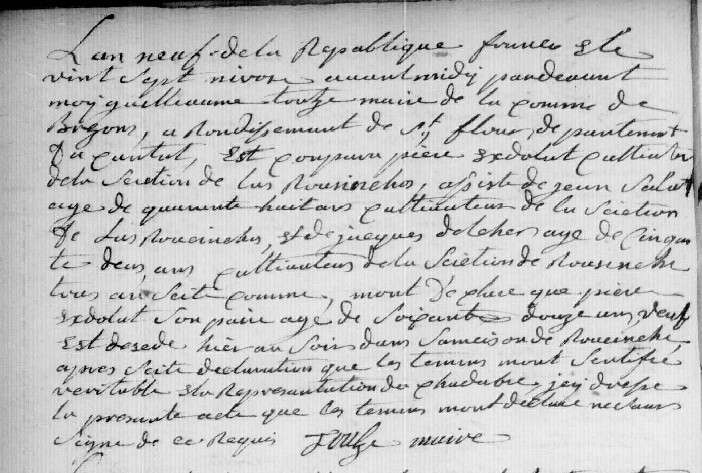 Lan neuf de la Republique france et le
vint sept nivose avant midy pardevant
moy guilleaume touze maire de la comme de
arondissemant de St flour, departement
du cantal, est conparu piere cultivateur
de la seiction de las Roueinches, assiste de jean salat
age de quarante huit ans cultivateur de la seiction
de Las Roueinches, et de jacques delcher age de cinquan
te deus ans cultivateur de la seiction de Roueinche
tous an seite comme, mont declare que piere
son paire age de soixante douze ans, veuf
est desede hier au soir dans sa meison de Roueinche,
apres seite declaration que les temins mont sertifié
veritable et la Representation du chadabre, jey dresse
la presante acte que les temins mont declare ne savoir
signe de ce Requis touze maire